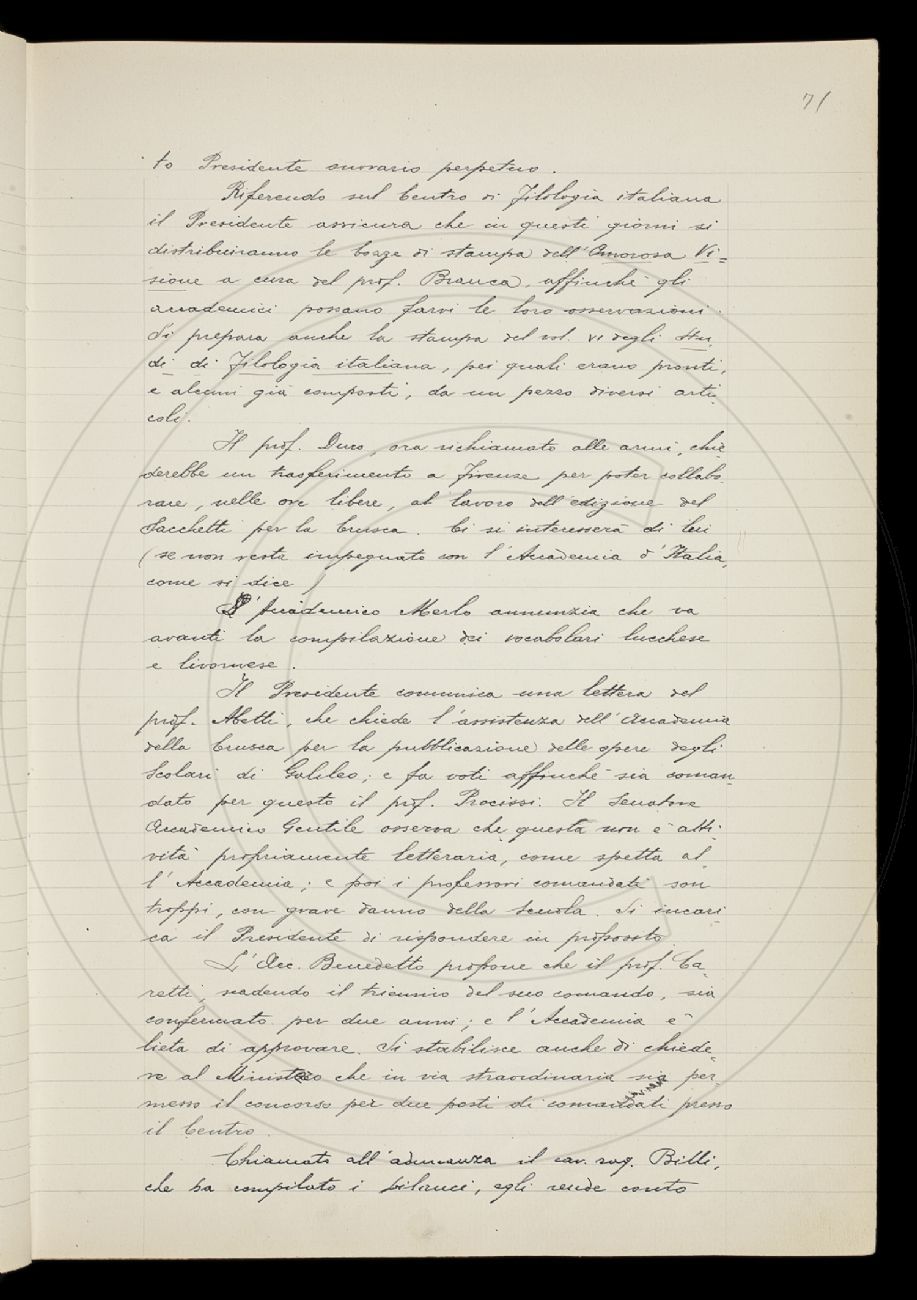 71
to Presidente onorario perpetuo.
Riferendo sul Centro di Filologia italiana
il Presidente assicura che in questi giorni si
distribuiranno le bozze di stampa dell'Amorosa Vi=
sione a cura del prof. Branca, affinché gli
accademici possano farvi le loro osservazioni.
Si prepara anche la stampa del vol. VI degli Stu-
di di Filologia italiana, pei quali erano pronti,
e alcuni già composti, da un pezzo diversi arti-
coli.
Il prof. Duro, ora richiamato alle armi, chie-
derebbe un trasferimento a Firenze per poter collabo-
rare, nelle ore libere, al lavoro dell'edizione del
Sacchetti per la Crusca. Ci si interesserà di lui
(se non resta impegnato con l'Accademia d'Italia,
come si dice)
L'Accademico Merlo annunzia che va
avanti la compilazione dei vocabolari lucchese
e livornese.
Il Presidente comunica una lettera del
prof. Abetti, che chiede l'assistenza dell'Accademia
della Crusca per la pubblicazione delle opere degli
Scolari di Galileo; e fa voti affinché sia coman-
dato per questo il prof. Procissi. Il Senatore
Accademico Gentile osserva che questa non è atti-
vità propriamente letteraria, come spetta al-
l'Accademia; e poi i professori comandati son
troppi, con grave danno della Scuola. Si incari-
ca il Presidente di rispondere in proposito.
L'Acc. Benedetto propone che il prof. Ca-
retti, scadendo il triennio del suo comando, sia
confermato per due anni; e l'Accademia è
lieta di approvare. Si stabilisce anche di chiede-
re al Ministero che in via straordinaria sia per-
messo il concorso per due posti di comandati presso
il Centro.
Chiamato all'adunanza il cav. rag. Billi,
che ha compilato i bilanci, egli rende conto